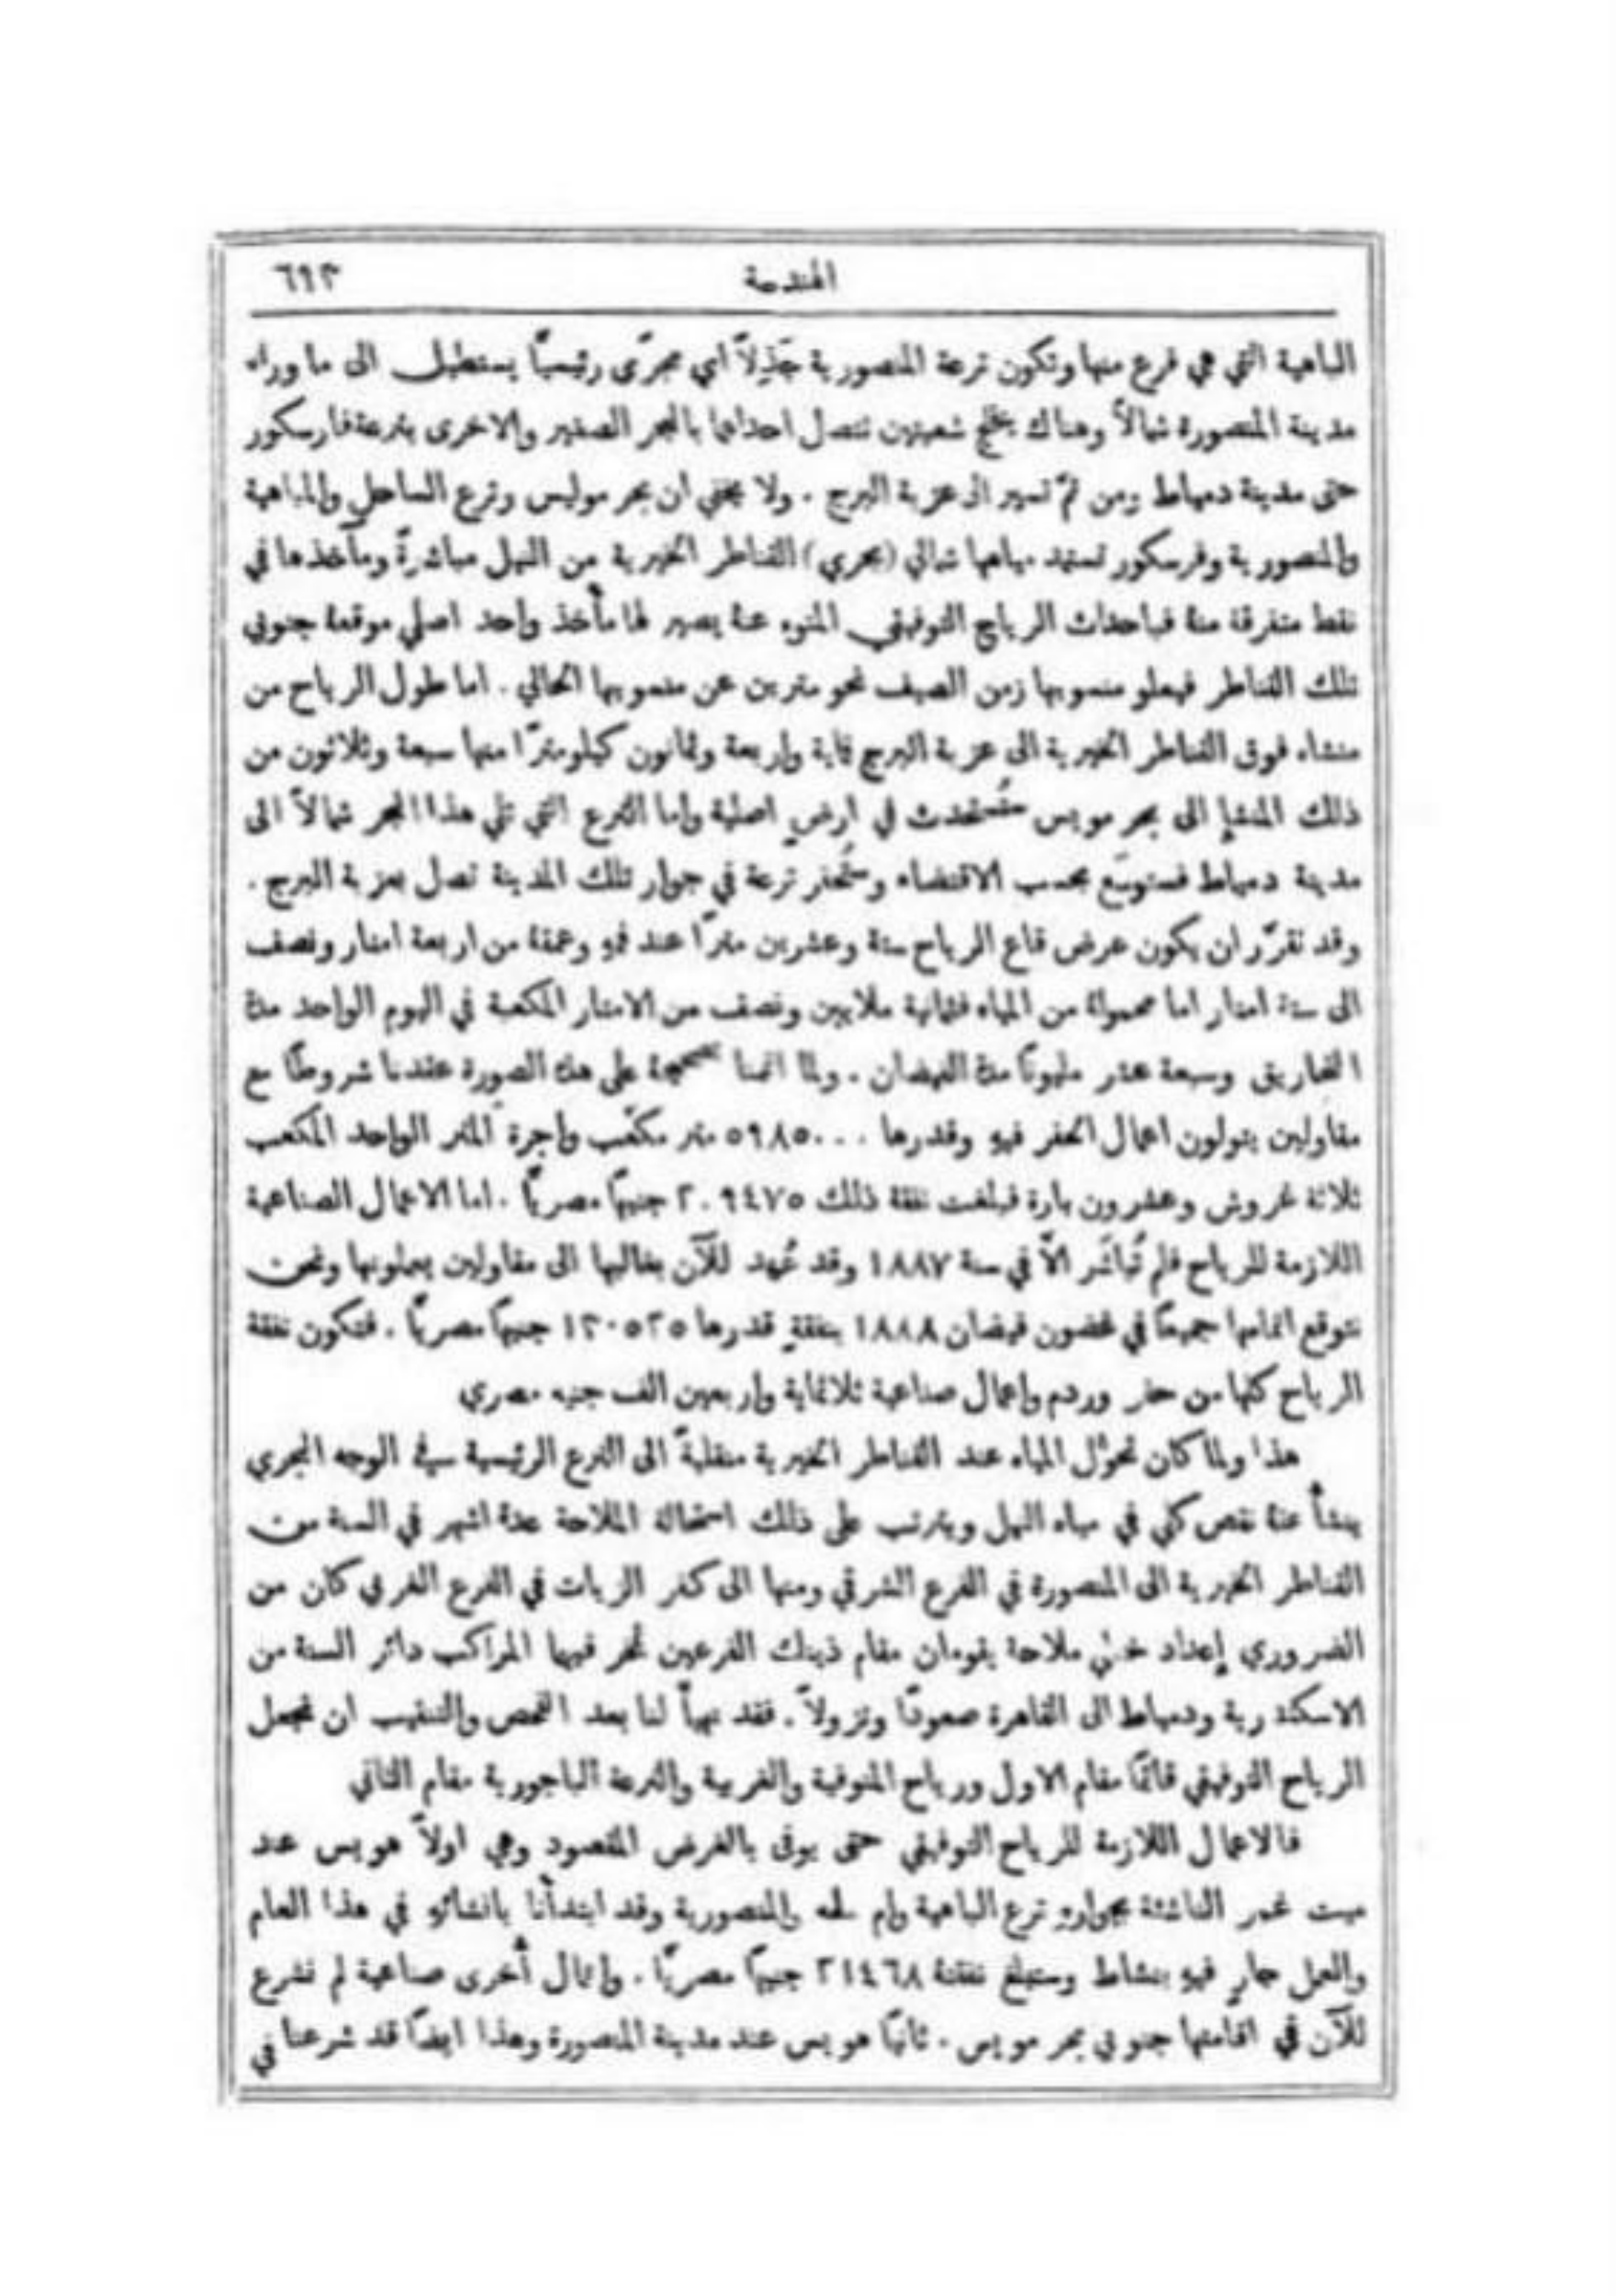 الهندسة ٦٩٣
الباهية التي هي فرع منها وتكون ترعة المنصورية جَذِيلاً اي مجرًى رئيسيًّا يستطيل الى ما وراء
مدينة المنصورة شمالاً وهناك شعبتين تتصل احداهما بالبحر الصغير والاخرى بترعة فارسكور
حتى مدينة دمياط ومن ثمَّ تسير الى عزبة البرج . ولا يخفى ان بحر موليس وترع الساحل والباهية
والمنصورية وفرسكور تستمد مياهها شمالي (بحري) القناطر الخيرية من النيل مباشرةً ومآخذها في
نقط متفرقة منهُ فباحداث الرياح التوفيقي المنوه عنهُ يصير لها مأخذ واحد اصلي موقعهُ جنوبي
تلك القناطر فيعلو منسوبها زمن الصيف نحو مترين عن منسوبها الحالي . اما طول الرياح من
منشاه فوق القناطر الخيرية الى عزبة البرج مئة واربعة وثمانون كيلومترًا منها سبعة وثلاثون من
ذلك المنشإ الى بحر مويس في ارضٍ اصلية واما الترع التي تلي هذا البحر شمالاً الى
مدينة دمياط فستوسَّع بحسب الاقتضاء وستُحفر ترعة في جوار تلك المدينة تصل بعزبة البرج .
وقد تقرَّر ان يكون عرض قاع الرياح ستة وعشرين مترًا عند فمهِ وعمقهُ من اربعة امتار ونصف
الى ستة امتار اما محمولهُ من المياه فثمانية ملايين ونصف من الامتار المكعبة في اليوم الواحد مدة
التحاريق وسبعة عشر مليونًا مدة الفيضان . ولما اتممنا على هذه الصورة عقدنا شروطًا مع
مقاولين يتولون اعمال الحفر فيهِ وقدرها ٥٩٨٥٠٠٠ متر مكعَّب واجرة المتر الواحد المكعب
ثلاثة غروش وعشرون بارة فبلغت نفقة ذلك ٢٠٩٤٧٥ جنيهًا مصريًّا . اما الاعمال الصناعية
اللازمة للرياح فلم تُباشَر الاَّ في سنة ١٨٨٧ وقد عُهد للآن بغالبها الى مقاولين يعملونها ونحن
نتوقع اتمامها جميعًا في غضون فيضان ١٨٨٨ بنفقةٍ قدرها ١٣٠٥٢٥ جنيهًا مصريًّا . فتكون نفقة
الرياح كلها من حفر وردم واعمال صناعية ثلاثماية واربعين الف جنيه مصري
هذا ولما كان تحوُّل المياه عند القناطر الخيرية منقلبةً الى الترع الرئيسية في الوجه البحري
ينشأ عنهُ نقص كلي في مياه النيل ويترتب على ذلك استحالة الملاحة عدة اشهر في السنة من
القناطر الخيرية الى المنصورة في الفرع الشرقي ومنها الى كفر الزيات في الفرع الغربي كان من
الضروري إعداد خطَّي ملاحة يقومان مقام ذينك الفرعين تمخر فيهما المراكب دائر السنة من
الاسكندرية ودمياط الى القاهرة صعودًا ونزولاً . فقد تهيأَ لنا بعد الفحص والتنقيب ان نجعل
الرياح التوفيقي قائمًا مقام الاول ورياح المنوفية والغربية والترعة الباجورية مقام الثاني
فالاعمال اللازمة للرياح التوفيقي حتى يوفى بالغرض المقصود وهي اولاً هويس عند
ميت غمر الناشئة بجوارهِ ترع الباهية وام سلمه والمنصورية وقد ابتدأنا بانشائهِ في هذا العام
والعمل جارٍ فيهِ بنشاط وستبلغ نفقتهُ ٢١٤٦٨ جنيهًا مصريًّا . واعمال أُخرى صناعية لم نشرع
للآن في اقامتها جنوبي بحر مويس . ثانيًا هويس عند مدينة المنصورة وهذا ايضًا قد شرعنا في